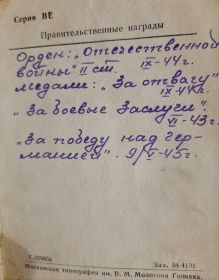 Серия ВЕ
Правительственные награды
Орден: „Отечественной
войны" II ст. IX-44г.
медали: „За отвагу"
IX-44г.
„За боевые Заслуги".
VI-43г.
„За победу над Гер-
манией". 9/V-45г.
Зак. 54-4131
Московская типография им. В. М. Молотова Гознака.